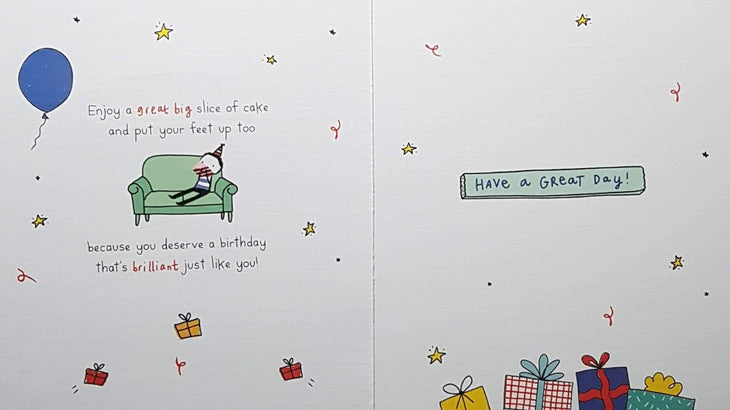 Enjoy a great big slice of cake
and put your feet up too
because you deserve a birthday
that's brilliant just like you!
HAVE a GREAT Day!